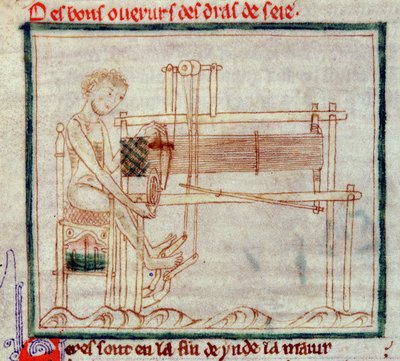 Des bons overurs des dras de seie.
Apres sont en la fin de ynde la maiur